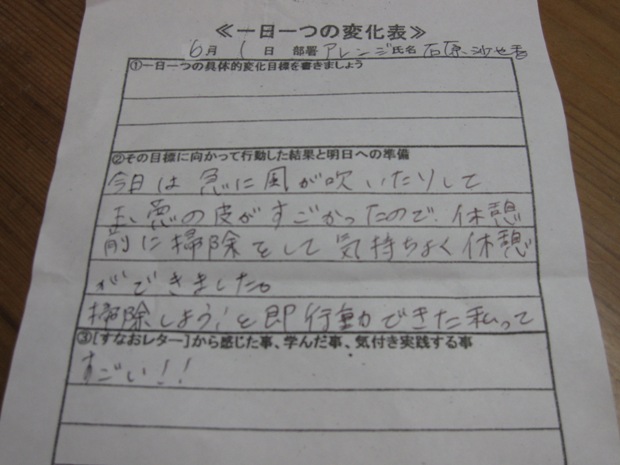 ≪一日一つの変化表≫
6月1日 部署 アレンジ 氏名 石原 沙也香
①一日一つの具体的変化目標を書きましょう
②その目標に向かって行動した結果と明日への準備
今日は急に風が吹いたりして
玉葱の皮がすごかったので、休憩
前に掃除をして気持ちよく休憩
ができました。
掃除しよう!と即行動できた私って
③[すなおレター]から感じた事、学んだ事、気付き実践する事
すごい!!